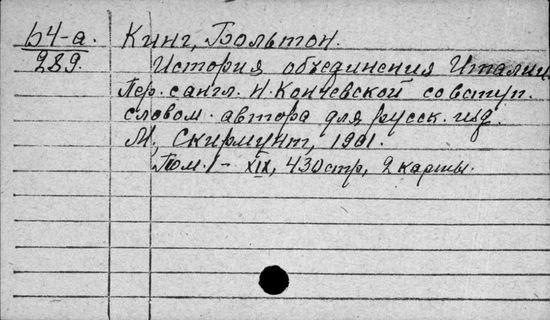 64-а.
289.
Кинг, Больтон.
История объединения Италии
Пер. с англ. Н. Кончевской со вступ.
словом автора для русск. изд.
М., Скирмунт, 1901.
Том. I - XIX, 430 стр, 2 карты.